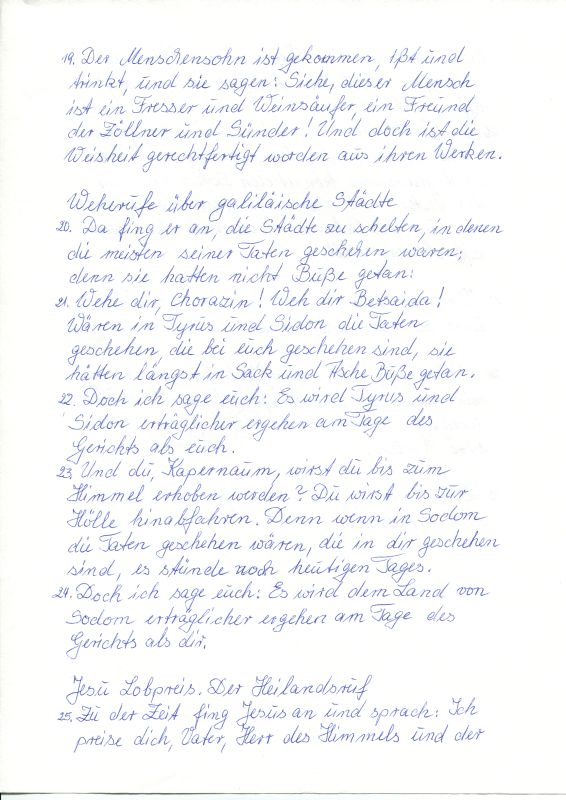 19. Der Menschensohn ist gekommen, ißt und
trinkt, und sie sagen: Siehe, dieser Mensch
ist ein Fresser und Weinsäufer, ein Freund
der Zöllner und Sünder! Und doch ist die
Weisheit gerechtfertigt worden aus ihren Werken.

Weherufe über galiläische Städte
20. Da fing er an, die Städte zu schelten, in denen
die meisten seiner Taten geschehen waren;
denn sie hatten nicht Buße getan:
21. Wehe dir, Chorazin! Weh dir Betsaida!
Wären in Tyrus und Sidon die Taten
geschehen, die bei euch geschehen sind, sie
hätten längst in Sack und Asche Buße getan.
22. Doch ich sage euch: Es wird Tyrus und
Sidon erträglicher ergehen am Tage des
Gerichts als euch.
23. Und du, Kapernaum, wirst du bis zum
Himmel erhoben werden? Du wirst bis zur
Hölle hinabfahren. Denn wenn in Sodom
die Taten geschehen wären, die in dir geschehen
sind, es stünde noch heutigen Tages.
24. Doch ich sage euch: Es wird dem Land von
Sodom erträglicher ergehen am Tage des
Gerichts als dir.

Jesu Lobpreis. Der Heilandsruf
25. Zu der Zeit fing Jesus an und sprach: Ich
preise dich, Vater, Herr des Himmels und der